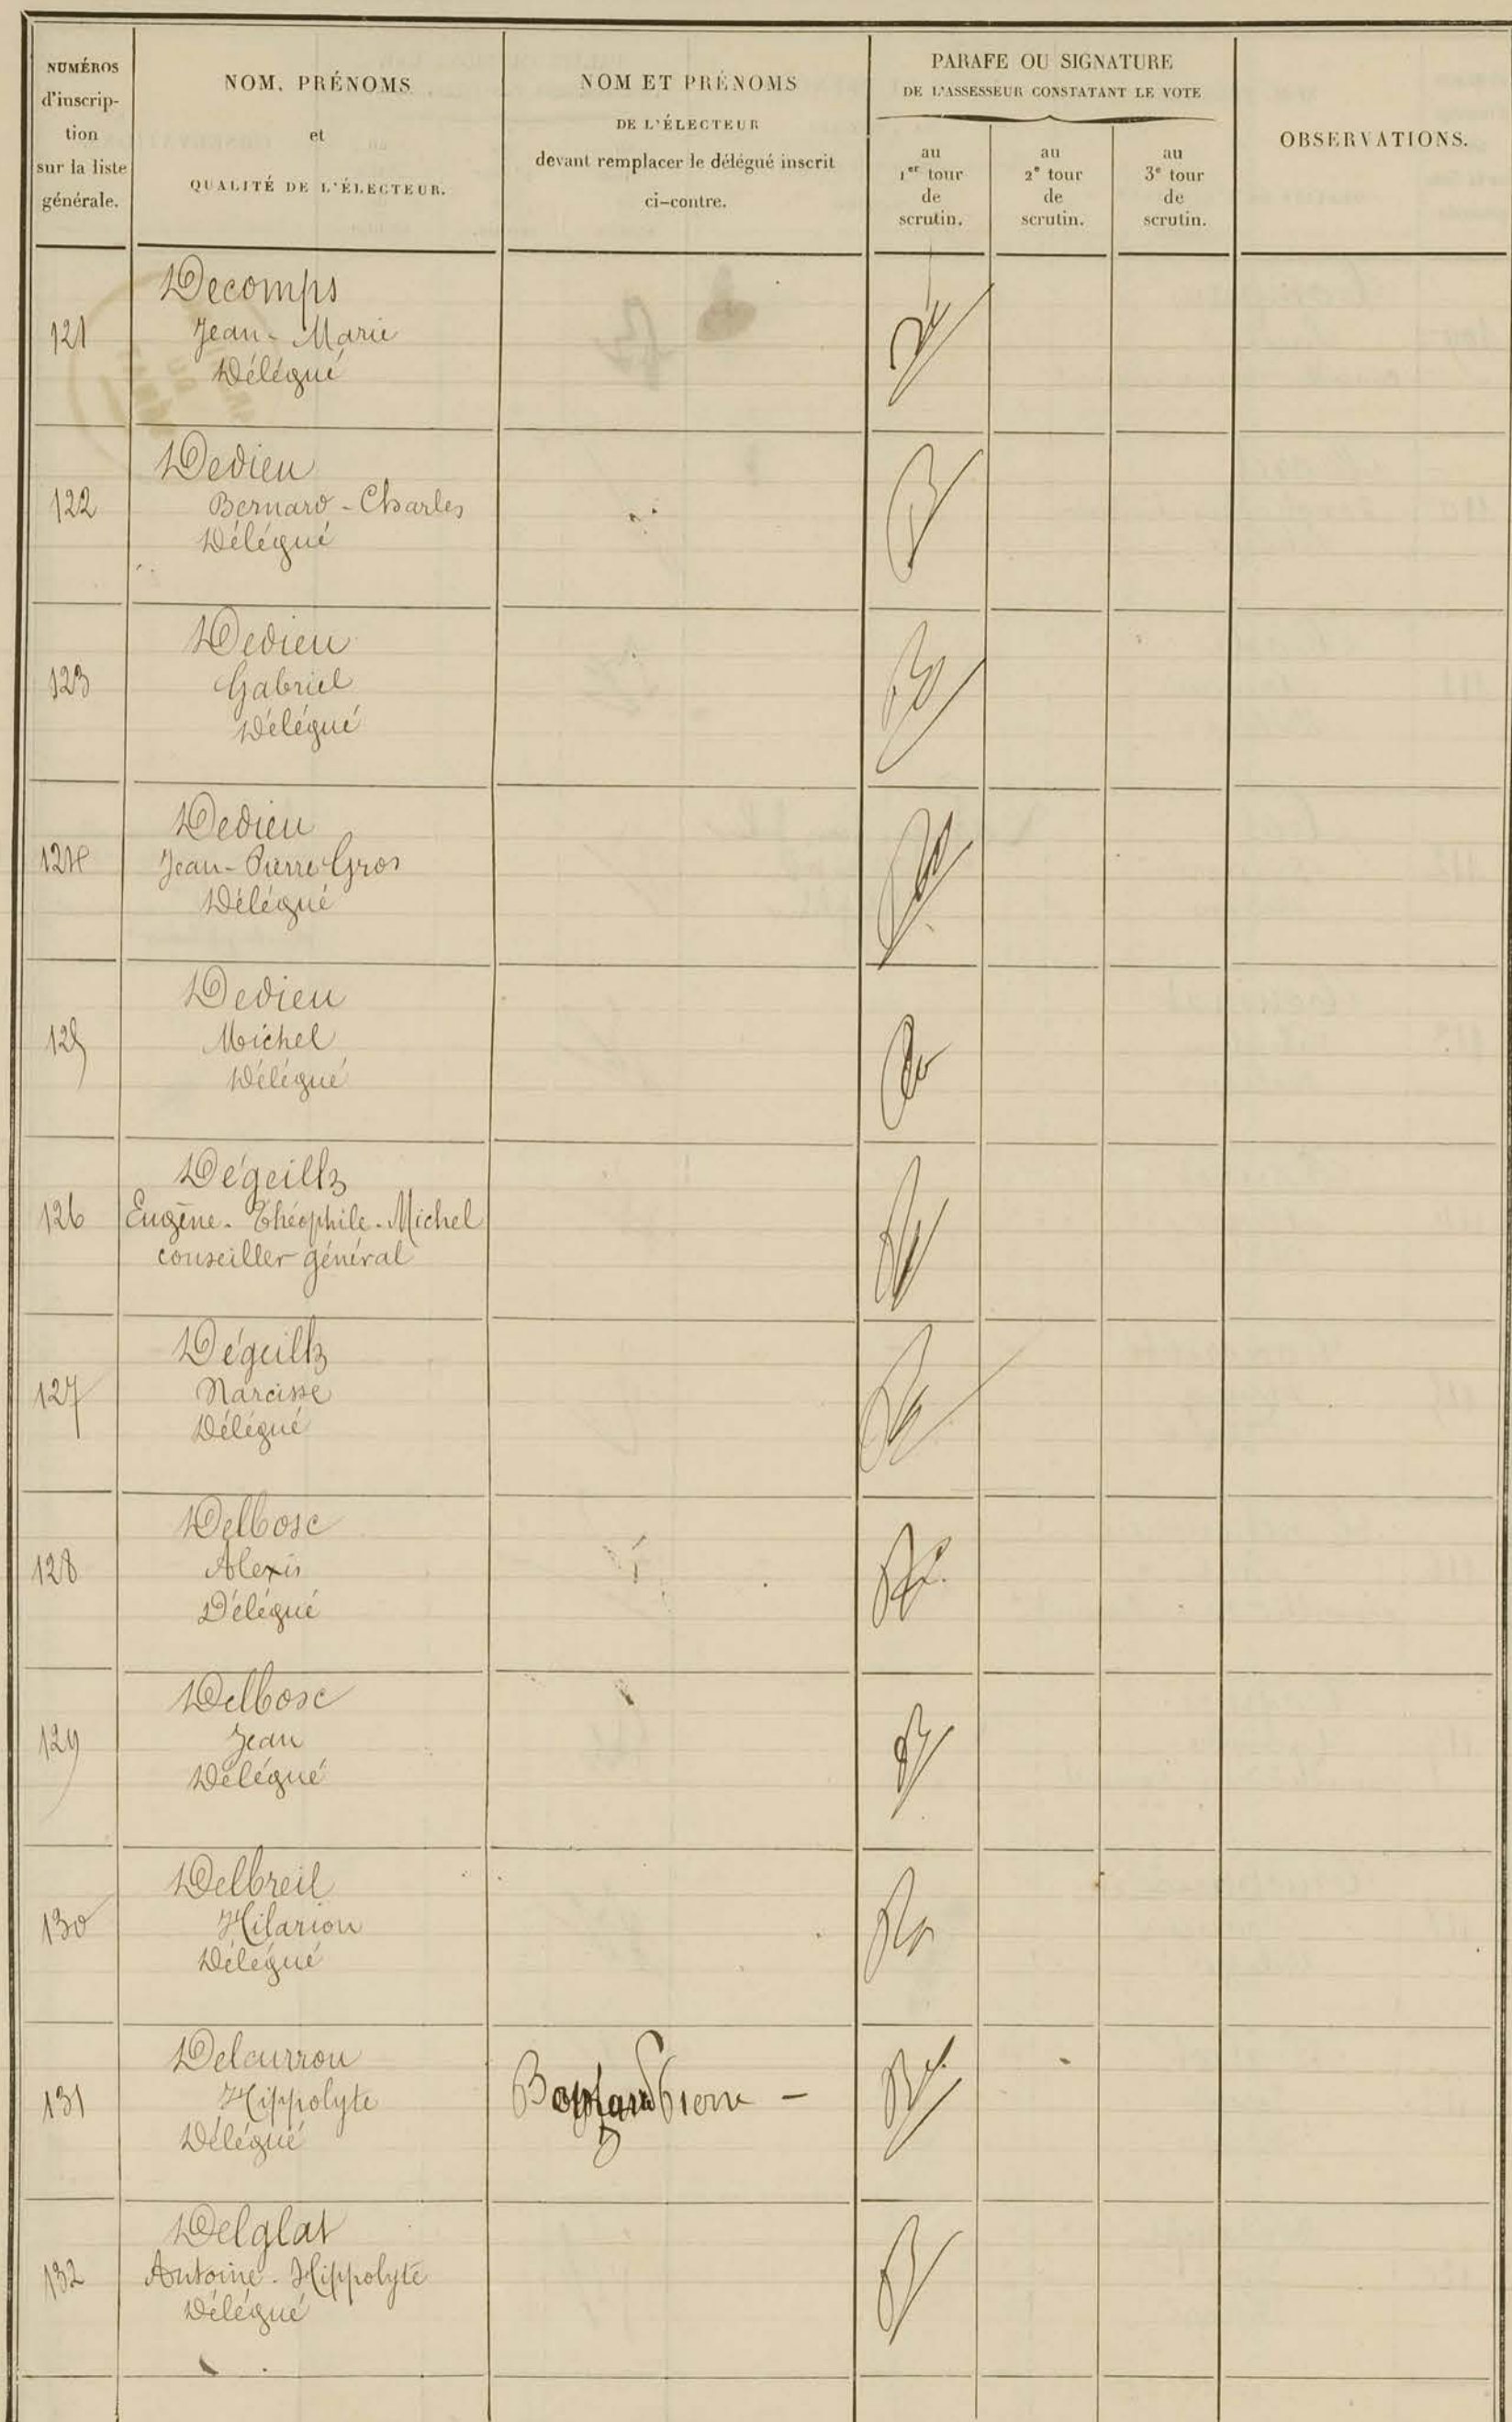 NUMÉROS
d'inscrip-
tion
sur la liste
générale.
NOM, PRÉNOMS
et
QUALITÉ DE L'ÉLECTEUR.
NOM ET PRÉNOMS
DE L'ÉLECTEUR
devant remplacer le délégué inscrit
ci-contre.
PARAFE OU SIGNATURE
DE L'ASSESSEUR CONSTATANT LE VOTE
au
1er tour
de
scrutin.
au
2e tour
de
scrutin.
au
3e tour
de
scrutin.
OBSERVATIONS.
121
Decomps
Jean-Marie
Délégué
122
Dedieu
Bernard-Charles
Délégué
123
Dedieu
Gabriel
Délégué
124
Dedieu
Jean-Pierre Gros
Délégué
125
Dedieu
Michel
Délégué
126
Dégeilh
Eugène-Théophile-Michel
conseiller général
127
Dégeilh
Narcisse
Délégué
128
Delbosc
Alexis
Délégué
129
Delbosc
Jean
Délégué
130
Delbreil
Hilarion
Délégué
131
Delcurrou
Hippolyte
Délégué
Pierre -
132
Delglat
Antoine-Hippolyte
Délégué